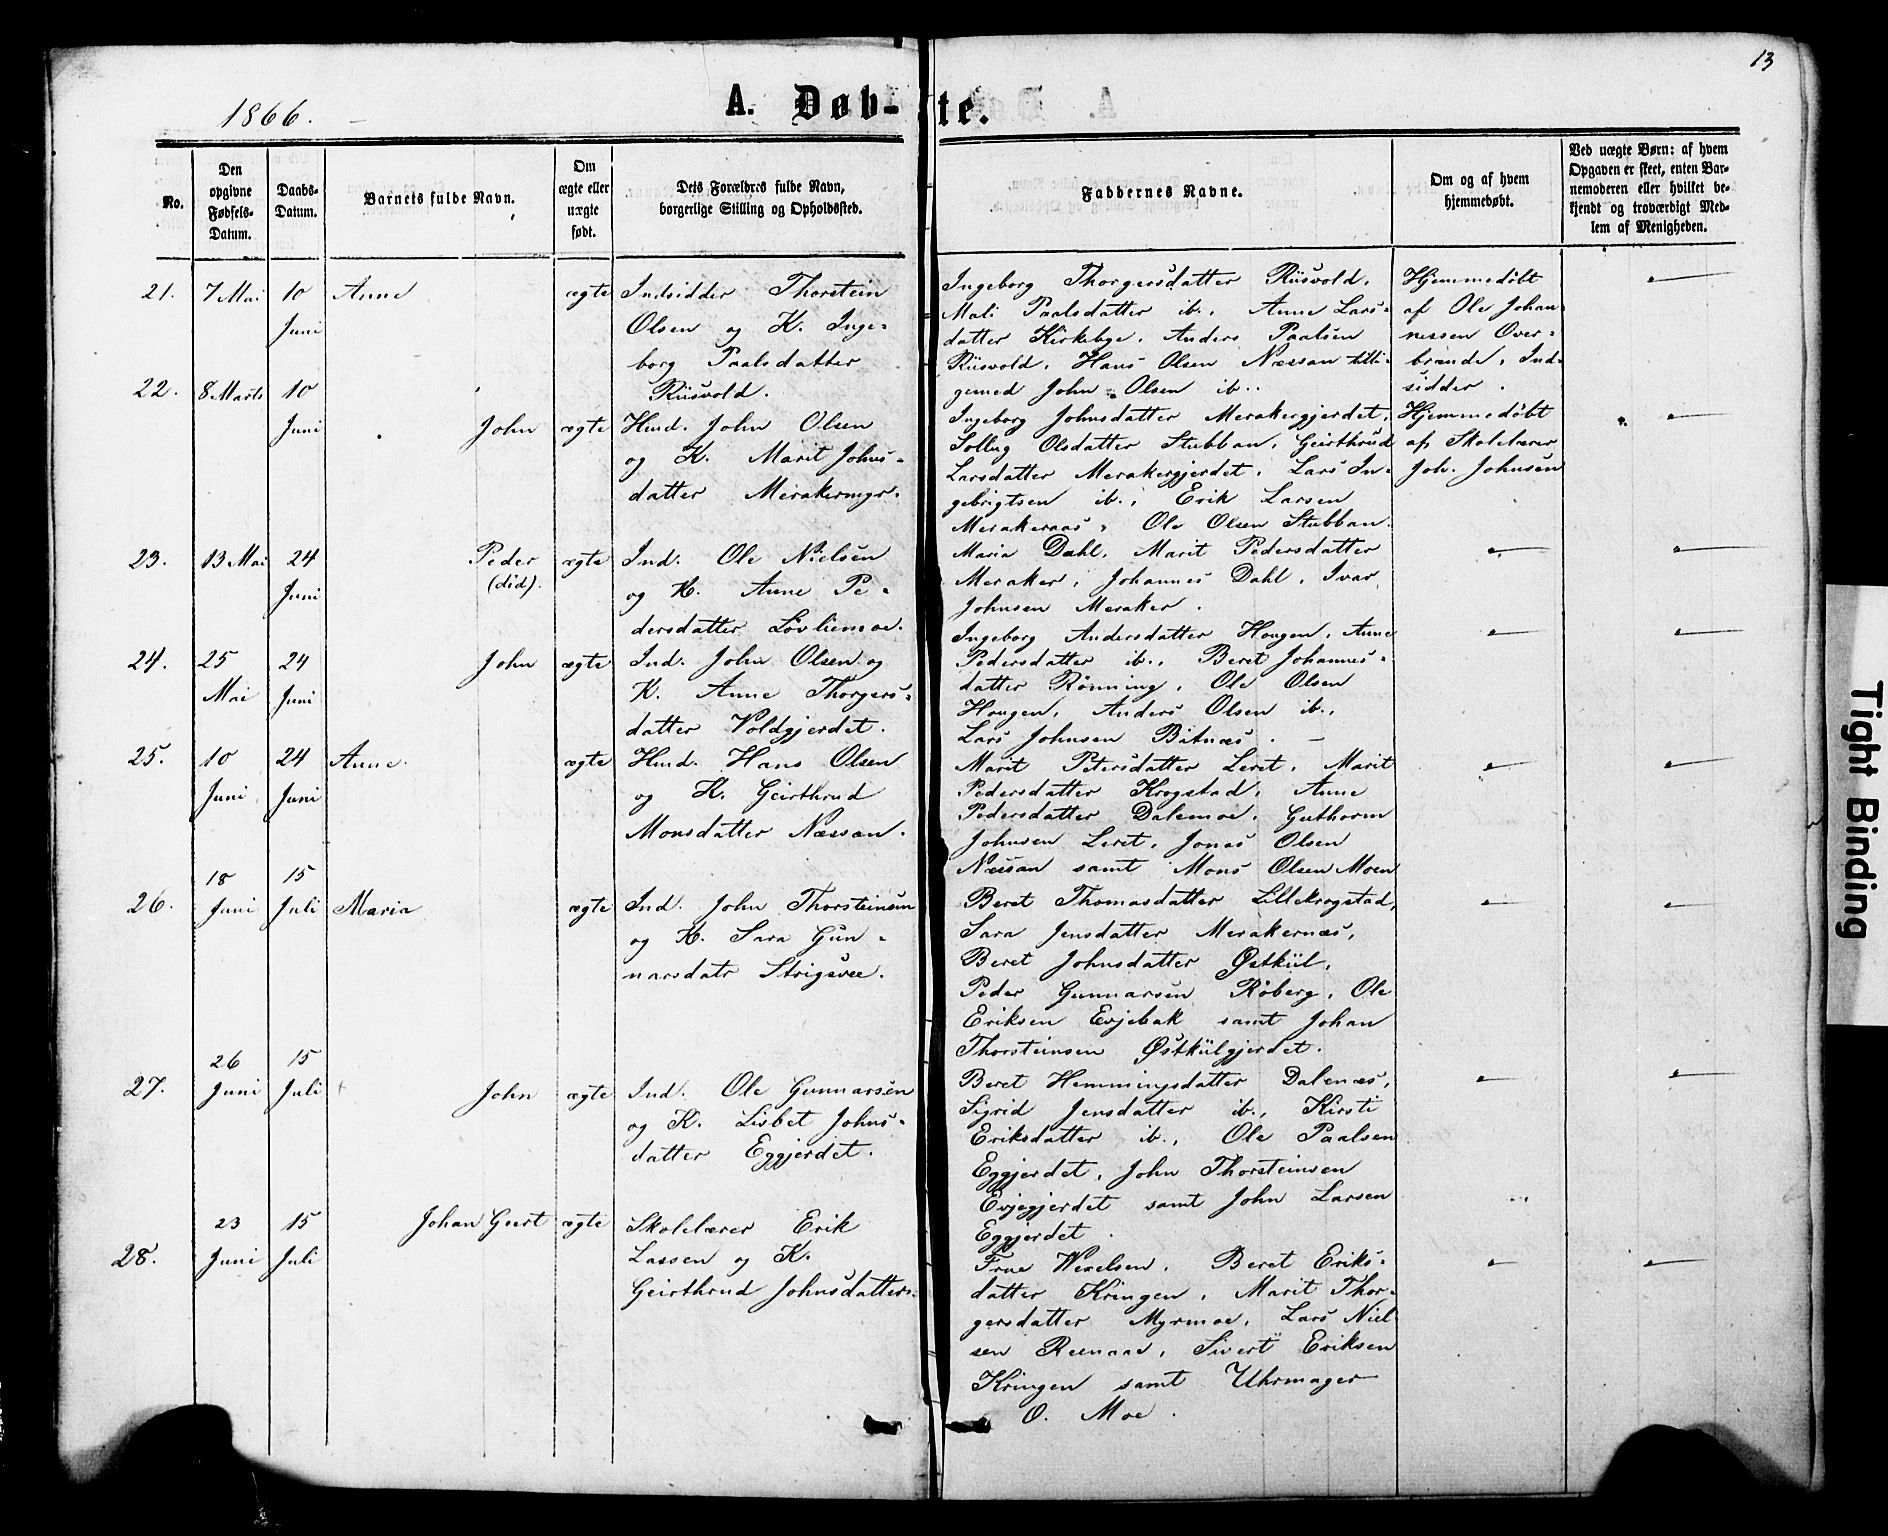 13
1866.
A. Døb-te.
No.
Den opgivne Fødsels-Datum.
Daabs-Datum.
Barnets fulde Navn.
Om ægte eller uægte født.
Dets Forældres fulde Navn, borgerlige Stilling og Opholdssted.
Faddernes Navne.
Om og af hvem hjemmedøbt.
Ved uægte Børn: af hvem Opgaven er skeet, enten Barnemoderen eller hvilket bekjendt og troværdigt Medlem af Menigheden.
21. 7 Mai 10 Juni Anne ægte
Indsidder Thorstein
Olsen og K. Inge-
borg Paalsdatter
Riisvold.
Ingeborg Thorgersdatter Riisvold,
Mali Paalsdatter ib., Anne Lars-
datter Kirkebye, Anders Paalsen
Riisvold, Hans Olsen Næssan tilli-
gemed John Olsen ib..
Hjemmedøbt
af Ole Johan-
nessen Over-
brande, Ind-
sidder.
22. 8 Marts 10 Juni John ægte
Hmd. John Olsen
og K. Marit Johns-
datter Merakermyr.
Ingeborg Johnsdatter Merakergjerdet,
Sollug Olsdatter Stubban, Geirthrud
Larsdatter Merakergjerdet, Lars In-
gebrigtsen ib., Erik Larsen
Merakeraas, Ole Olsen Stubban.
Hjemmedøbt
af Skolelærer
Joh. Johnsen
23. 13 Mai 24 Juni Peder
(død).
ægte
Ind. Ole Nielsen
og K. Anne Pe-
dersdatter Løvliemoe.
Maria Dahl, Marit Pedersdatter
Meraker, Johannes Dahl, Ivar
Johnsen Meraker.
24. 25 Mai 24 Juni John ægte
Ind. John Olsen og
K. Anne Thorgers-
datter Voldgjerdet.
Ingeborg Andersdatter Hougen, Anne
Pedersdatter ib., Beret Johannes-
datter Rønning, Ole Olsen
Hougen, Anders Olsen ib.,
Lars Johnsen Bitnæs.
25. 10 Juni 24 Juni Anne. ægte
Hmd. Hans Olsen
og K. Geirthrud
Monsdatter Næssan.
Marit Petersdatter Leret, Marit
Pedersdatter Krogstad, Anne
Pedersdatter Dalemoe, Guthorm
Johnsen Leret, Jonas Olsen
Næssan samt Mons Olsen Moen
26. 18 Juni 15 Juli Maria ægte
Ind. John Thorsteinsen
og K. Sara Gun-
narsdatr Strigsvee.
Beret Thomasdatter Lillekrogstad,
Sara Jensdatter Merakernæs,
Beret Johnsdatter Østkiil,
Peder Gunnarsen Røberg, Ole
Eriksen Evjebak samt Johan
Thorsteinsen Østkiilgjerdet.
27. 26 Juni 15 Juli John ægte
Ind. Ole Gunnarsen
og K. Lisbet Johns-
datter Eggjerdet.
Beret Hemmingsdatter Dalenæs,
Sigrid Jensdatter ib., Kirsti
Eriksdatter ib., Ole Paalsen
Eggjerdet, John Thorsteinsen
Evjegjerdet samt John Larsen
Eggjerdet.
28. 23 Juni 15 Juli Johan Geert ægte
Skolelærer Erik
Lassen og K.
Geirthrud Johnsdatter.
Frue Wexelsen, Beret Eriks-
datter Kringen, Marit Thor-
gersdatter Myrmoe, Lars Niel-
sen Reenaae, Sivert Eriksen
Kringen samt Uhrmager
O. Moe.
Tight Binding